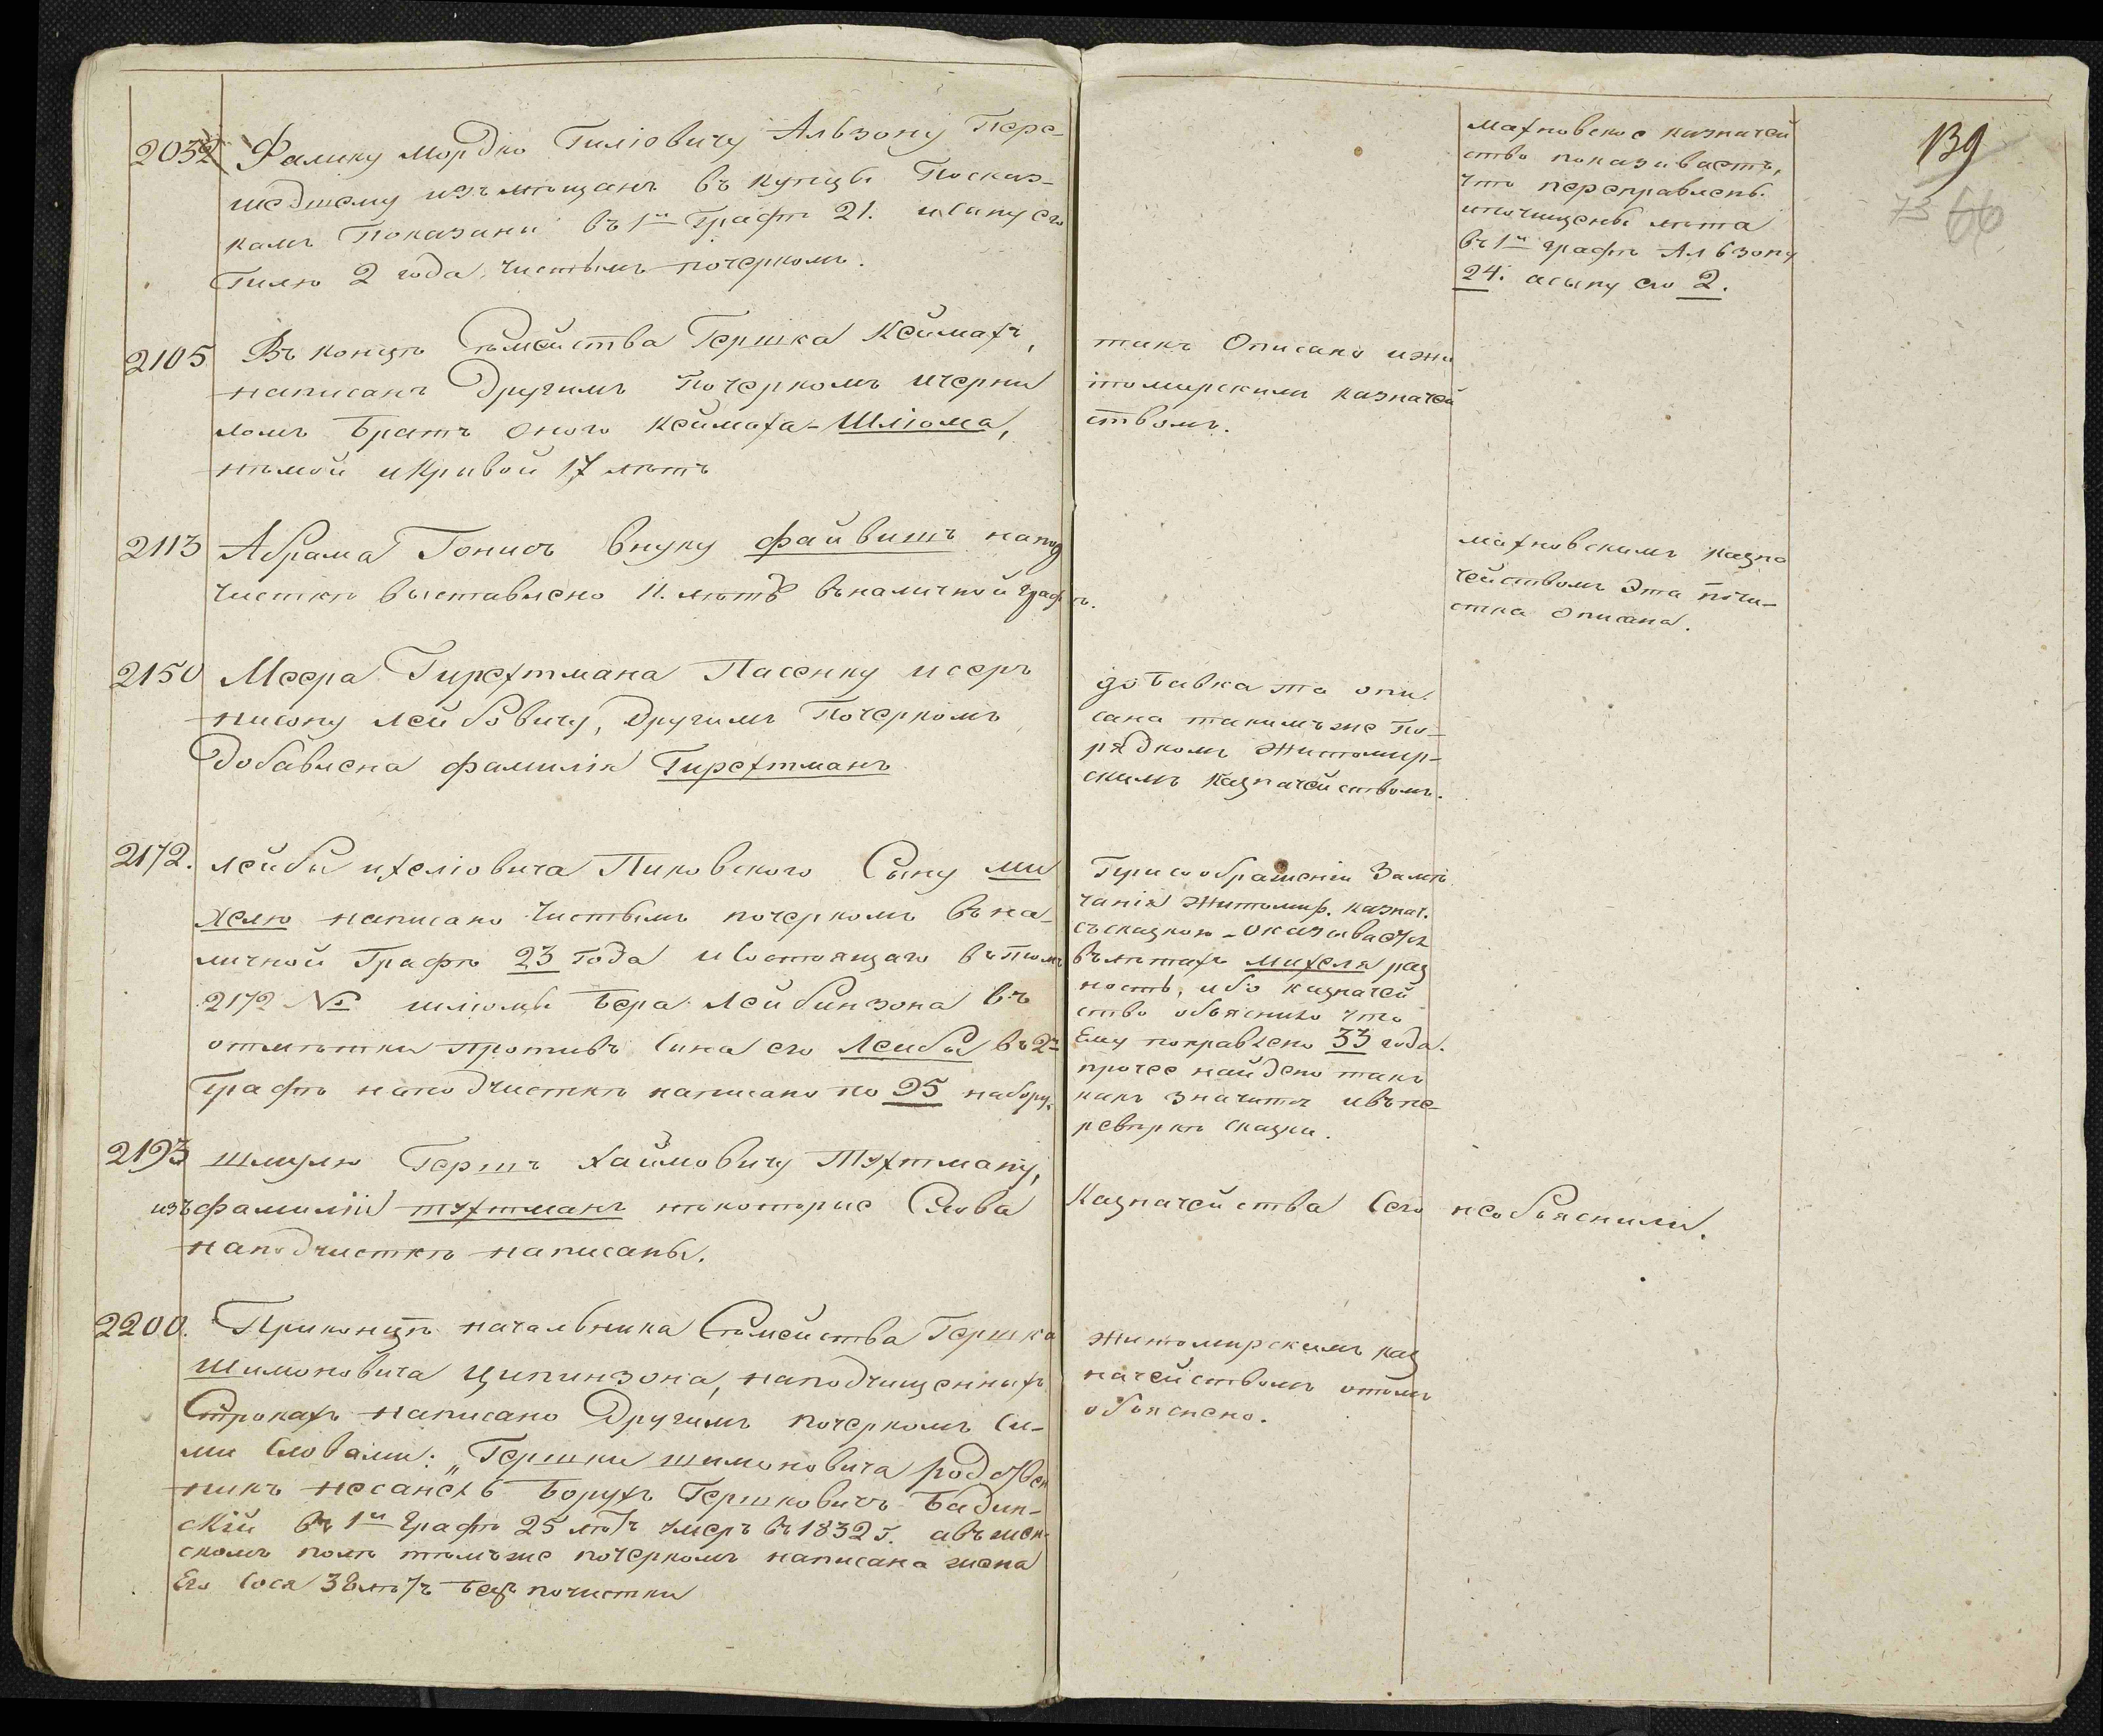 139
73 66
2032 Фалику Мордко Гиліовичу Альзону Пере-
шедшему изъ мѣщанъ въ купцы Посказ-
камъ Показани въ 1й Графѣ 21. исыну его
Гилю 2 года, чистымъ почеркомъ.
Махновское казначей
ство показиваетъ,
что переправлены
ипочищены лѣта
въ 1й графѣ Альзону
24. асыну его 2.
2105 Въ концѣ Сѣмейства Гершка Кеймахъ,
написанъ Другимъ Почеркомъ ичерни
ломъ Братъ оного Кеймаха-Шліома,
нѣмой икривой 17 лѣтъ
такъ Описано ижи
томирскимъ казначей
ствомъ.
2113 Абрама Гонисъ внуку Файвишъ напод
чисткѣ выставлено 11. лѣтъ вналичной графѣ.
Махновскимъ казна
чействомъ эта почи-
стка описана.
2150 Меера Гирехтмана Пасенку исеръ
нисону Лейбовичу, Другимъ Почеркомъ
Добавлена фамилія Гирехтманъ
добавка та опи
сана такимъже по-
рядкомъ Житомир-
скимъ Казначействомъ.
2172. Лейбы ихеліовича Пиковского Сыну ми
хелю написано чистымъ почеркомъ вна-
личной Графѣ 23 года исостоящаго втомъ
2172 № шліомы Бера Лейбинзона въ
отмѣтки противъ сина его Лейбы въ 2й
Графѣ наподчисткѣ написано по 25 набору.
При соображеніи Замѣ
чанія Житомир. казнач.
съсказкою оказивается
влѣтахъ михеля раз
ность, ибо казначей
ство объяснило что
Ему поправлено 33 года.
прочее найдено такъ
какъ значится ивъпе-
ревѣркѣ сказки.
2193 шмулю Гершъ Хаймовичу Тухтману,
изъ фамиліи тухтманъ нѣкоторые Слова
наподчисткѣ написаны.
Казначейства сего необъяснили.
2200. Приконцѣ начальника Сѣмейства Гершка
Шимоновича Ципинзона, наподчищенныхъ
Строкахъ написано Другимъ почеркомъ си-
ми словами: „Гершки шимоновича родствен
никъ несанель Борухъ Гершковичъ Бадин-
скій въ 1й Графѣ 25 лѣтъ умеръ въ 1832 г. авжен-
скомъ полѣ тѣмъже почеркомъ написана жена
Его Сося 38 лѣтъ безъ почистки
Житомирскимъ каз
начействомъ отомъ
объяснено.